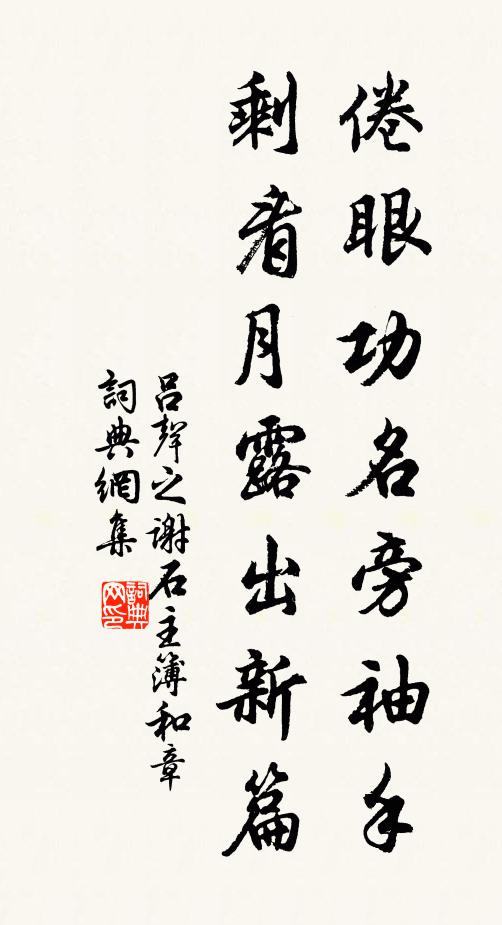 倦眼功名旁袖手
剩看月露出新篇
吕聲之謝石主簿和章
詞典網集
詞典网印